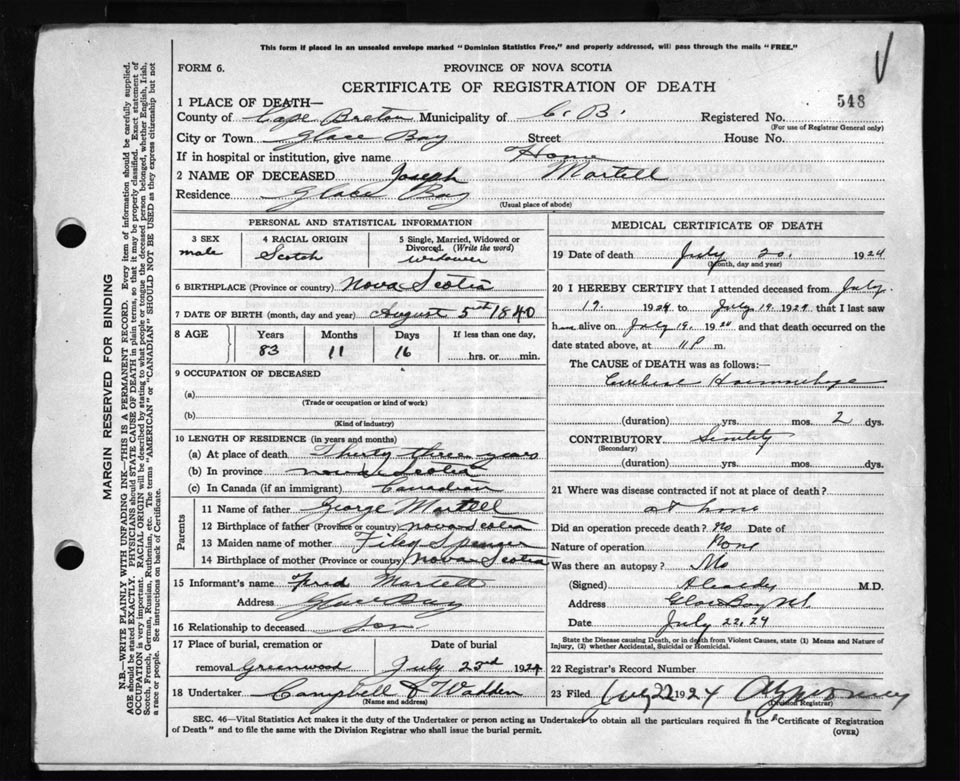 This form if placed in an unsealed envelope marked "Dominion Statistics Free," and properly addressed, will pass through the mails "FREE."
FORM 6.
PROVINCE OF NOVA SCOTIA
CERTIFICATE OF REGISTRATION OF DEATH
548
1 PLACE OF DEATH—
County of Cape Breton Municipality of C. B. Registered No.
(For use of Registrar General only)
City or Town Glace Bay Street House No.
If in hospital or institution, give name Home
2 NAME OF DECEASED Joseph Martell
Residence Glace Bay
(Usual place of abode)
MARGIN RESERVED FOR BINDING
N.B.—WRITE PLAINLY WITH UNFADING INK—THIS IS A PERMANENT RECORD. Every item of information should be carefully supplied.
AGE should be stated EXACTLY. PHYSICIANS should STATE CAUSE OF DEATH in plain terms, so that it may be properly classified. Exact statement of
OCCUPATION is very important. RACIAL ORIGIN will be described by stating to what people or tongue the deceased person belonged, whether English, Irish,
Scotch, French, German, Russian, Ruthenian, etc. The terms "AMERICAN" or "CANADIAN" SHOULD NOT BE USED as they express citizenship but not
a race or people. See instructions on back of Certificate.
PERSONAL AND STATISTICAL INFORMATION
3 SEX
male
4 RACIAL ORIGIN
Scotch
5 Single, Married, Widowed or
Divorced. (Write the word)
widower
6 BIRTHPLACE (Province or country) Nova Scotia
7 DATE OF BIRTH (month, day and year) August 5th 1840
8 AGE
Years Months Days If less than one day,
83 11 16 hrs. or min.
9 OCCUPATION OF DECEASED
(a)
(Trade or occupation or kind of work)
(b)
(Kind of industry)
10 LENGTH OF RESIDENCE (in years and months)
(a) At place of death Thirty three years
(b) In province nova Scotia
(c) In Canada (if an immigrant) Canadian
Parents
11 Name of father George Martell
12 Birthplace of father (Province or country) nova Scotia
13 Maiden name of mother Spencer
14 Birthplace of mother (Province or country) Nova Scotia
15 Informant's name Fred Martell
Address Glace Bay
16 Relationship to deceased Son
17 Place of burial, cremation or Date of burial
removal Greenwood July 23rd 1924
18 Undertaker Campbell & Wadden
(Name and address)
MEDICAL CERTIFICATE OF DEATH
19 Date of death July 20. 1924
(Month, day and year)
20 I HEREBY CERTIFY that I attended deceased from July
19. 1924 to July 19. 1924 that I last saw
him alive on July 19. 1924 and that death occurred on the
date stated above, at 11 P m.
The CAUSE OF DEATH was as follows:
Cerebral Haemorrhage
(duration) yrs. mos. 2 dys.
CONTRIBUTORY Senility
(Secondary)
(duration) yrs. mos. dys.
21 Where was disease contracted if not at place of death?
at home
Did an operation precede death? No Date of
Nature of operation None
Was there an autopsy? No
(Signed) M.D.
Address Glace Bay N.S.
Date July 22, 24
State the Disease causing Death, or in death from Violent Causes, state (1) Means and Nature of
Injury, (2) whether Accidental, Suicidal or Homicidal.
22 Registrar's Record Number
23 Filed July 22 1924
(Division Registrar)
SEC. 46—Vital Statistics Act makes it the duty of the Undertaker or person acting as Undertaker to obtain all the particulars required in the "Certificate of Registration
of Death" and to file the same with the Division Registrar who shall issue the burial permit.
(OVER)